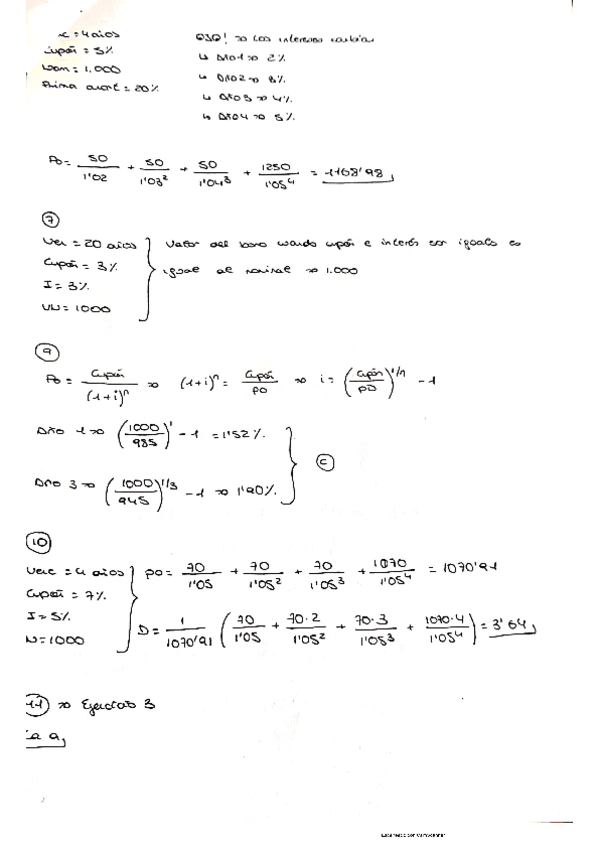 = 4 años
cupón = 5%
Nom = 1.000
Prima amort = 20%
OJO! => Los intereses cambian
↳ Año 1 => 2%
↳ Año 2 => 3%
↳ Año 3 => 4%
↳ Año 4 => 5%
Po = 50/1'02 + 50/1'03² + 50/1'04³ + 1250/1'05⁴ = 1168'98
7
Ven = 20 años
Cupón = 3%
I = 3%
VN = 1000
Valor del bono cuando cupón e interés son iguales es
igual al nominal => 1.000
9
Po = Cupón/(1+i)ⁿ => (1+i)ⁿ = Cupón/Po => i = (Cupón/PO)^1/n - 1
Año 1 => (1000/985)^1 - 1 = 1'52%
Año 3 => (1000/945)^1/3 - 1 => 1'90%
C
10
Venc = 4 años
Cupón = 7%
I = 5%
N = 1000
po = 70/1'05 + 70/1'05² + 70/1'05³ + 1070/1'05⁴ = 1070'91
D = 1/1070'91 (70/1'05 + 70·2/1'05² + 70·3/1'05³ + 1070·4/1'05⁴) = 3'64
11 => Ejercicio 3
a